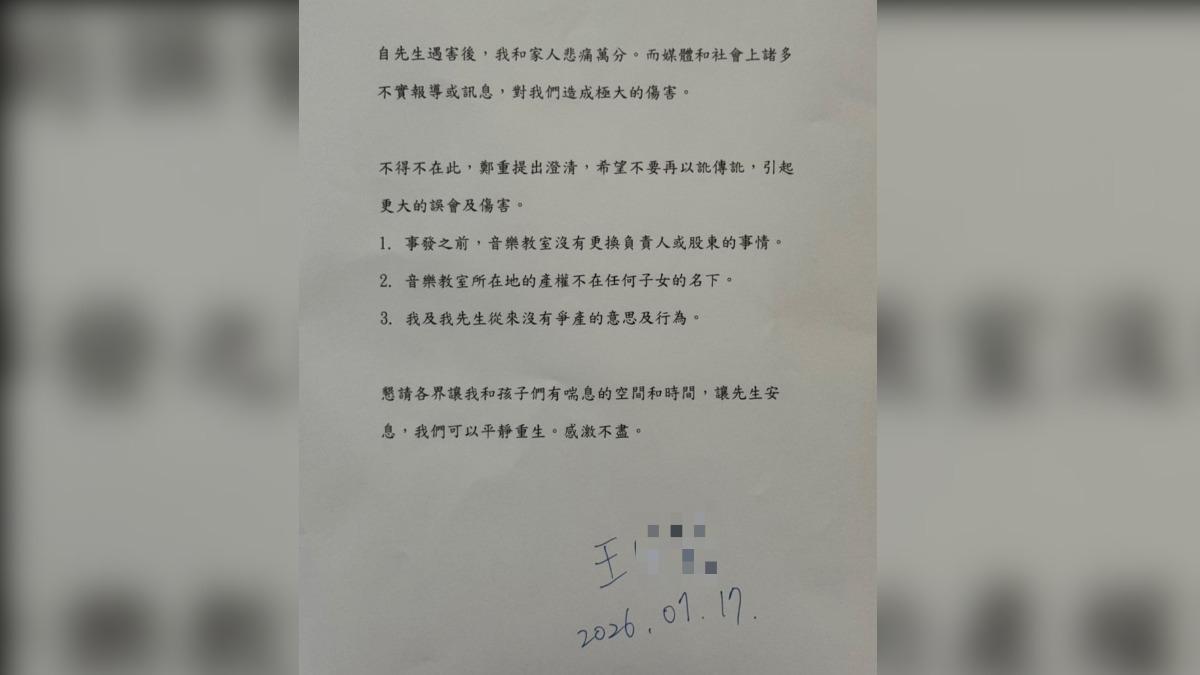 自先生遇害後，我和家人悲痛萬分。而媒體和社會上諸多
不實報導或訊息，對我們造成極大的傷害。
不得不在此，鄭重提出澄清，希望不要再以訛傳訛，引起
更大的誤會及傷害。
1. 事發之前，音樂教室沒有更換負責人或股東的事情。
2. 音樂教室所在地的產權不在任何子女的名下。
3. 我及我先生從來沒有爭產的意思及行為。
懇請各界讓我和孩子們有喘息的空間和時間，讓先生安
息，我們可以平靜重生。感激不盡。
王
2026.07.17.